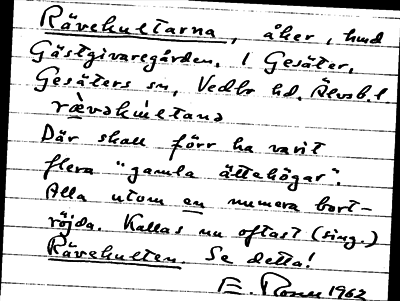 Rävekultarna, åker, hmd
Gästgivaregården, 1 Gesäter,
Gesäters sn, Vedbo hd, Älvsb. l
rævəkúltanə
Där skall förr ha varit
flera "gamla ättehögar".
Alla utom en numera bort-
röjda. Kallas nu oftast (sing.)
Rävekulten. Se detta!
E. 1962